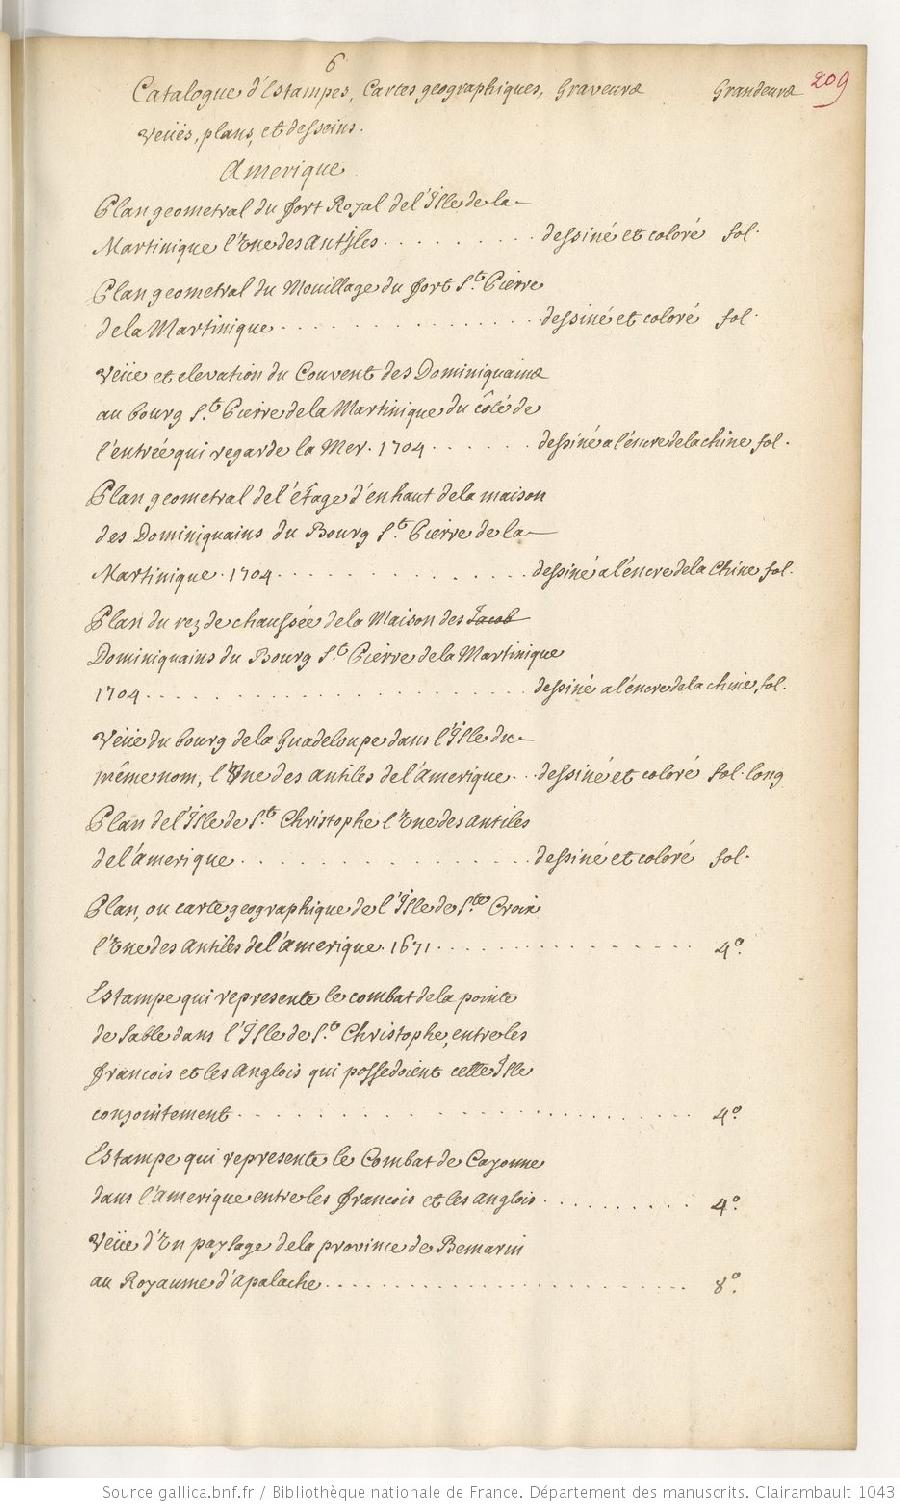 6
209
Catalogue d'Estampes, Cartes geographiques, Graveures Grandeurs
Veües, plans, et desseins.
Amerique
Plan geometral du fort Royal de l'Isle de la
Martinique l'Une des Antisles . . . . . . . . . dessiné et coloré fol.
Plan geometral du Mouillage du fort St. Pierre
de la Martinique . . . . . . . . . . . . . . . dessiné et coloré fol.
Veüe et elevation du Couvent des Dominiquains
au bourg St. Pierre de la Martinique du côté de
l'entrée qui regarde la Mer. 1704 . . . . . . dessiné a l'encre de la chine fol.
Plan geometral de l'étage d'en haut de la maison
des Dominiquains du Bourg St. Pierre de la
Martinique. 1704 . . . . . . . . . . . . . . dessiné a l'encre de la Chine fol.
Plan du rez de chaussée de la Maison des Jacob
Dominiquains du Bourg St. Pierre de la Martinique
1704 . . . . . . . . . . . . . . . . . . . . . dessiné a l'encre de la chine, fol.
Veüe du bourg de la Guadeloupe dans l'Isle du
même nom, l'Une des antiles de l'Amerique . . dessiné et coloré fol. long
Plan de l'Isle de St. Christophe l'Une des antiles
de l'amerique . . . . . . . . . . . . . . . . dessiné et coloré fol.
Plan, ou carte geographique de l'Isle de Ste. Croix
l'Une des Antiles de l'amerique. 1671 . . . . . . . . . . . . . . . 4º.
Estampe qui represente le combat de la pointe
de Sable dans l'Isle de St. Christophe, entre les
françois et les Anglois qui possedoient cette Isle
conjointement . . . . . . . . . . . . . . . . . . . . . . . . . . 4º
Estampe qui represente le Combat de Cayenne
dans l'Amerique entre les françois et les anglois . . . . . . . . . 4º.
Veüe d'Un paysage de la province de Bemarin
au Royaume d'Apalache . . . . . . . . . . . . . . . . . . . . . . 8º.
Source gallica.bnf.fr / Bibliothèque nationale de France. Département des manuscrits. Clairambault 1043